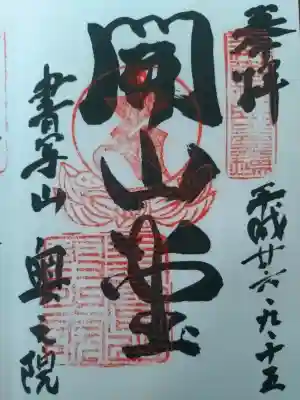 奉拝
平成廿六、九、十五
開山堂
書写山 奥之院